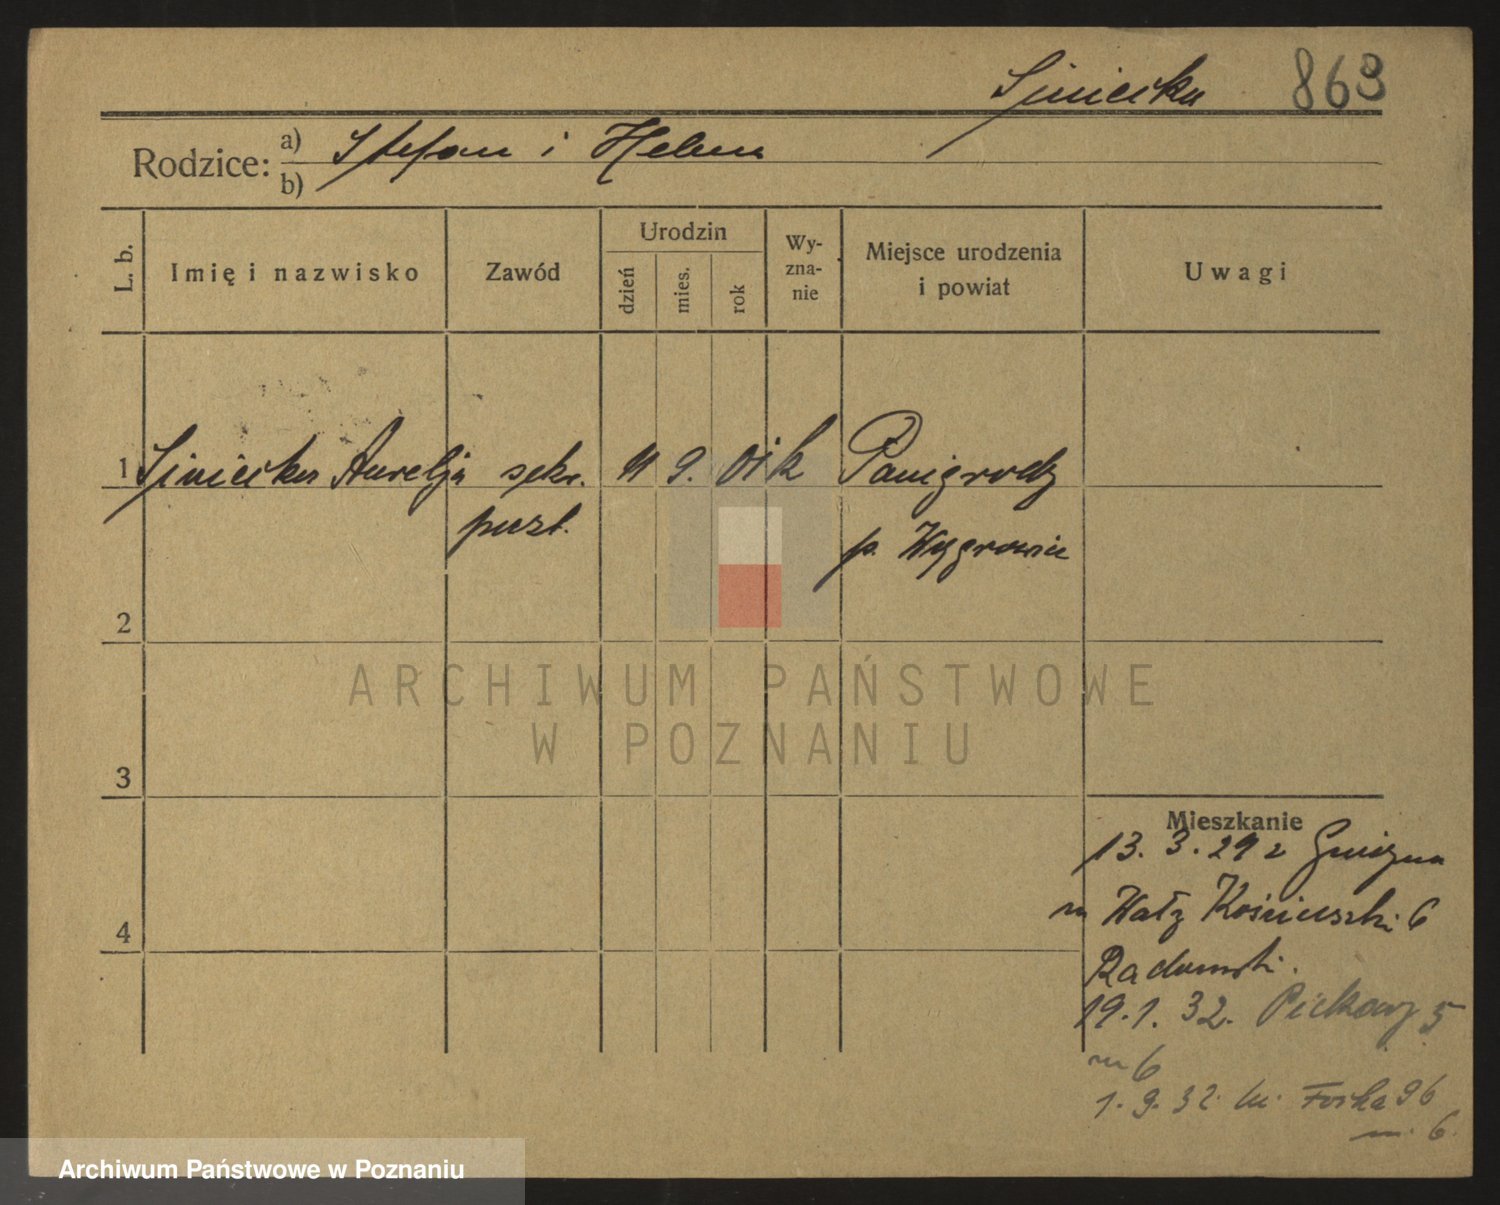 Siniecka 863
Rodzice: a) Stefan i Helena
b)
L. b. Imię i nazwisko Zawód Urodzin dzień mies. rok Wyznanie Miejsce urodzenia i powiat Uwagi
1 Siniecka Aurelja sekr. 11 9. 01 k Panigrodz
poczt. p. Wągrowiec
2
3
4
Mieszkanie
13. 3. 29 z Gniezna
Wały Kościuszki 6
Radomski.
19. 1. 32. Piekary 5
m 6
1. 9. 32. 96
m. 6.
ARCHIWUM PAŃSTWOWE
W POZNANIU
Archiwum Państwowe w Poznaniu